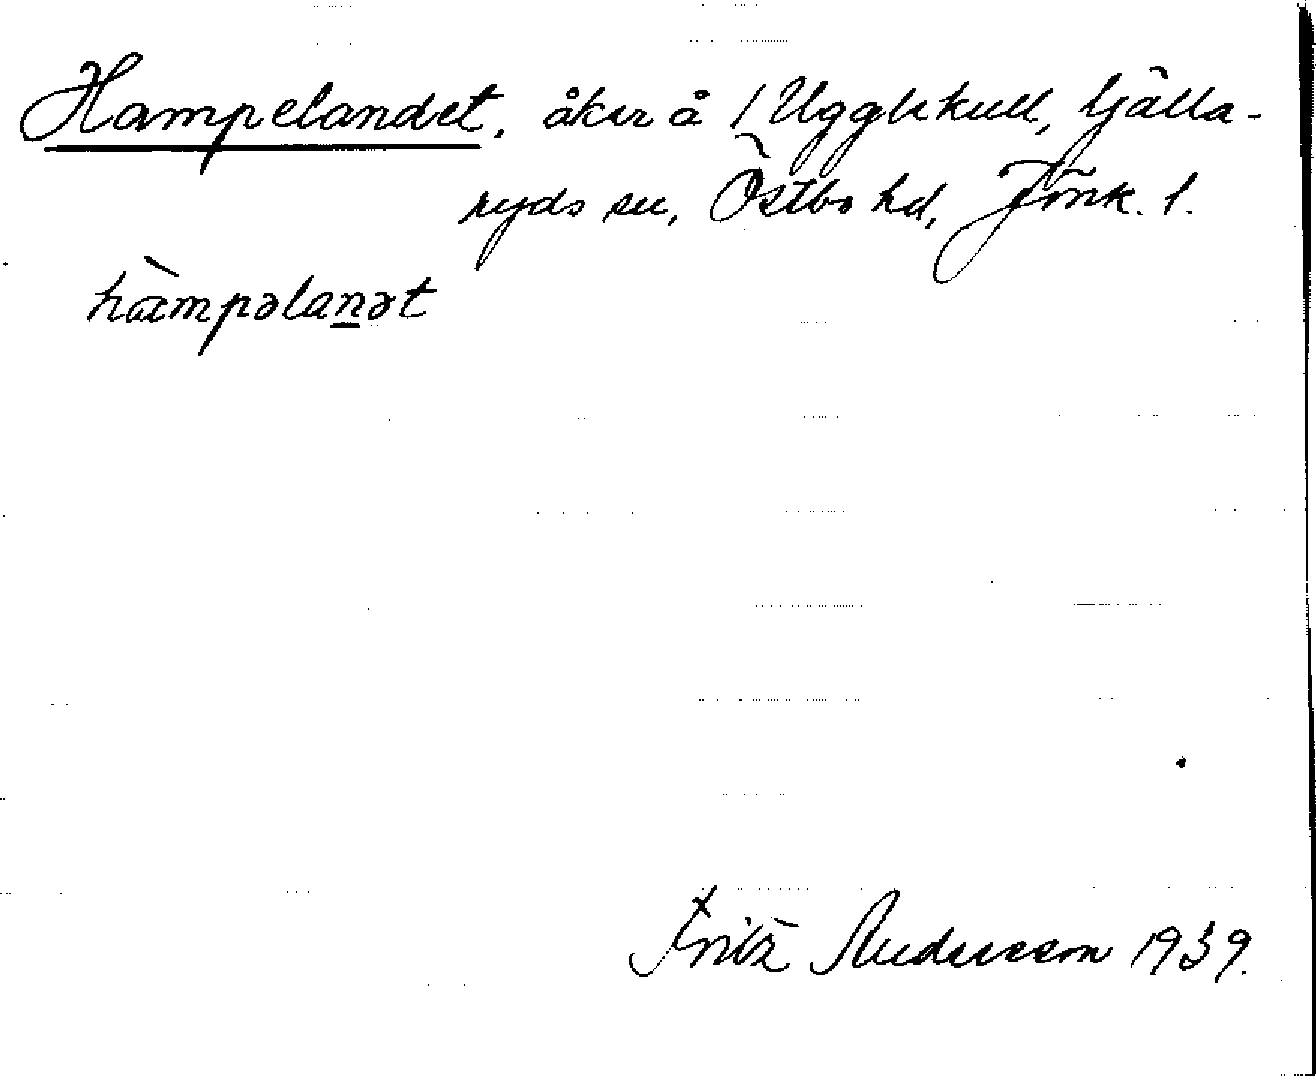 Hampelandet, åker å 1 Ugglekull, Gjälla-
ryds sn, Östbo hd, Jönk. l.
hàmpəlanət
Fritz Andersson 1939.